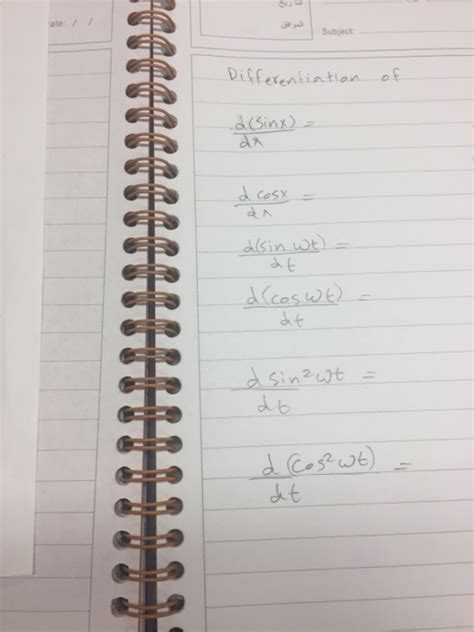 ate: / /
التاريخ
الموافق
Subject:
Differentiation of
d(sinx) =
dx
d cosx =
dx
d(sin wt) =
dt
d(cos wt) =
dt
d sin²wt =
dt
d (cos²wt) =
dt